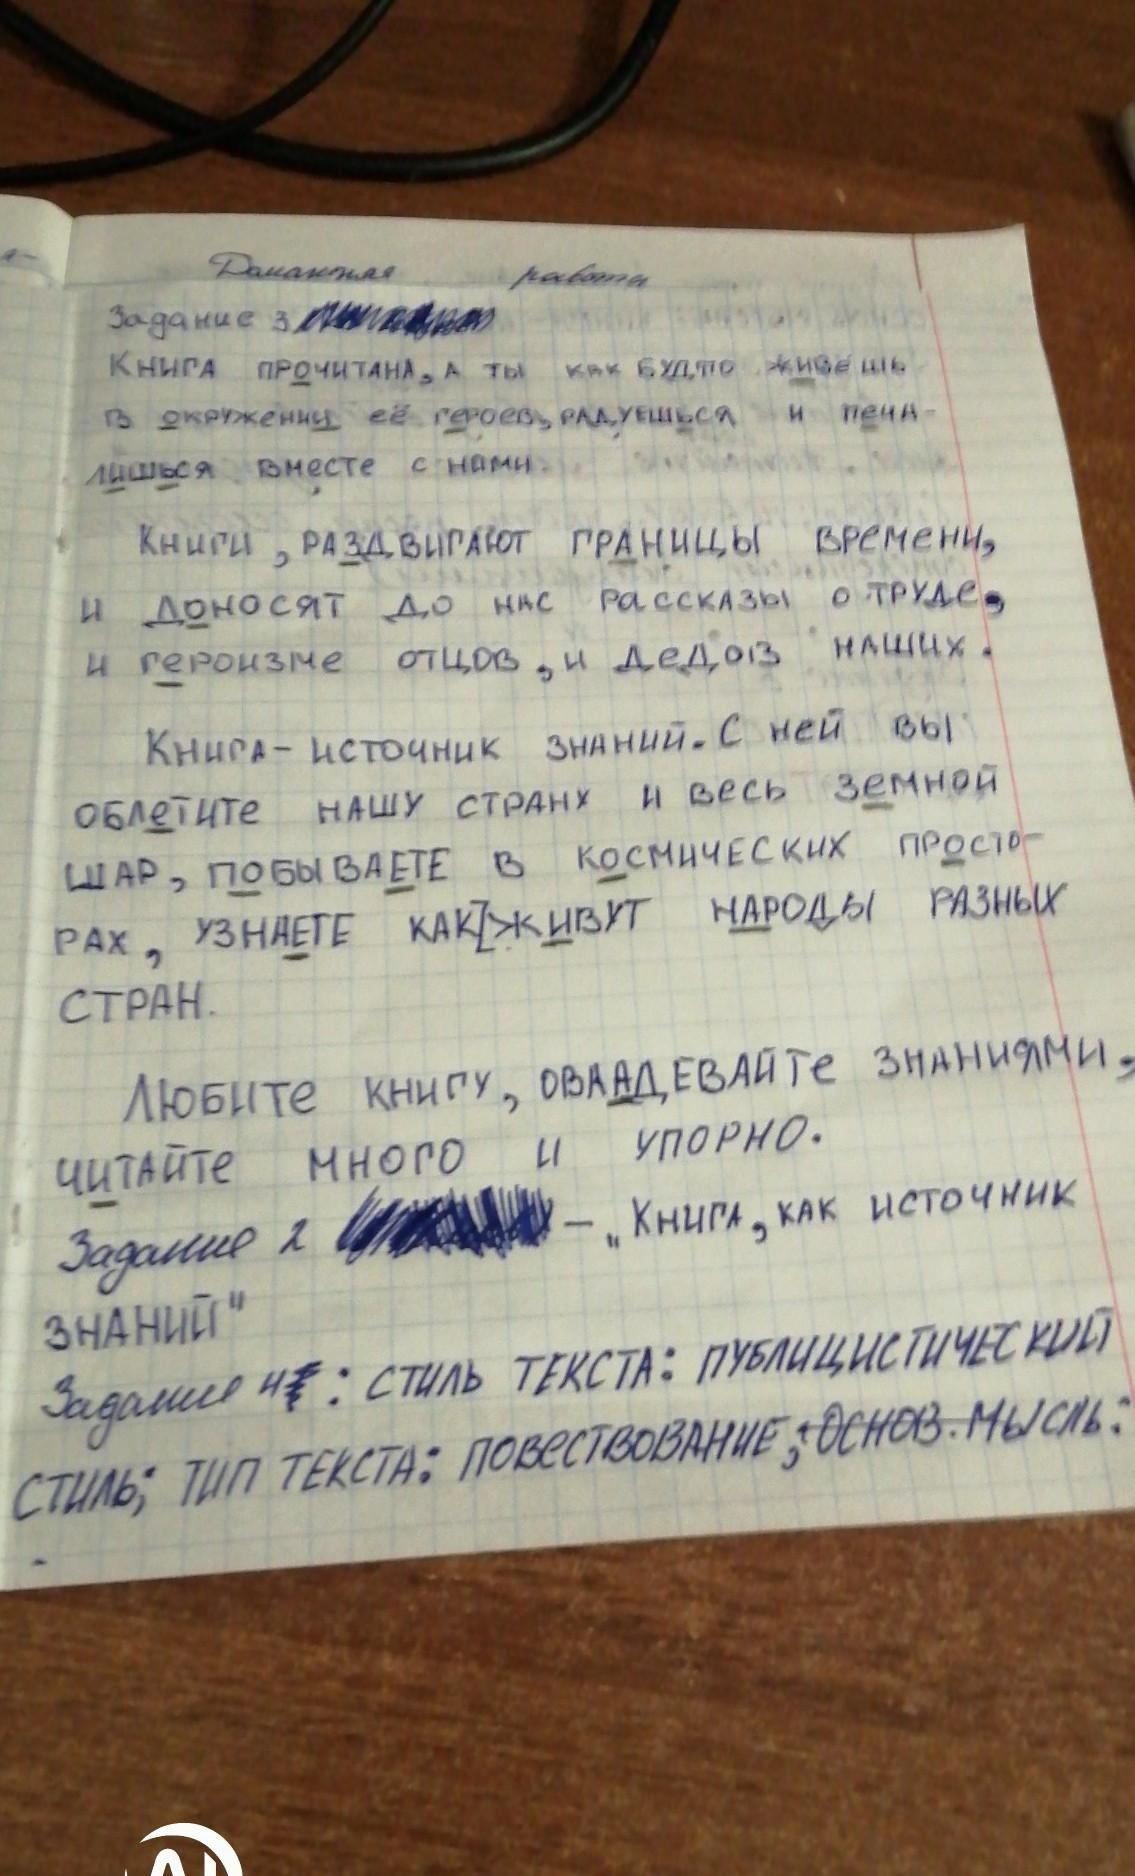 Домашняя работа
Задание 3
Книга прочитана, а ты как будто живёшь
в окружении её героев, радуешься и печа-
лишься вместе с ними.
Книги, раздвигают границы времени,
и доносят до нас рассказы о труде,
и героизме отцов, и дедов наших.
Книга - источник знаний. С ней вы
облетите нашу страну и весь земной
шар, побываете в космических просто-
рах, узнаете как живут народы разных
стран.
Любите книгу, оваадевайте знаниями,
читайте много и упорно.
Задание 2 – „Книга, как источник
знаний"
Задание 4: стиль текста: публицистический
стиль; тип текста: повествование; основ. мысль: